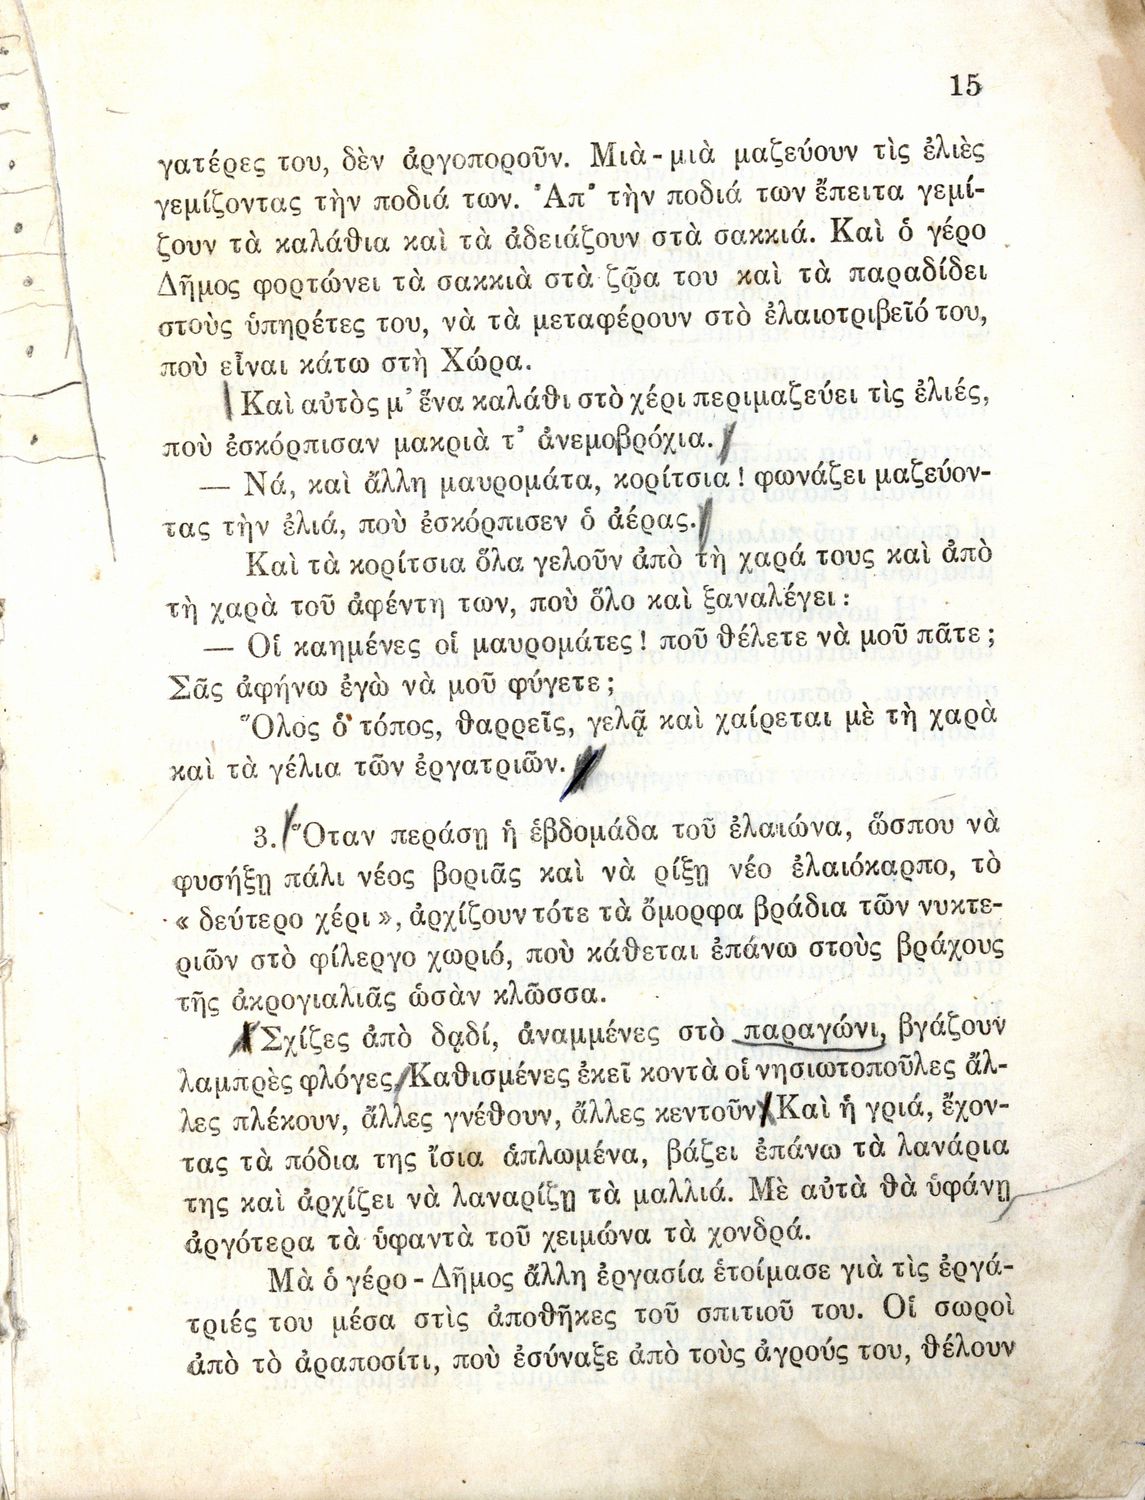 15
γατέρες του, δὲν ἀργοποροῦν. Μιὰ - μιὰ μαζεύουν τὶς ἐλιὲς
γεμίζοντας τὴν ποδιά των. Ἀπ' τὴν ποδιά των ἔπειτα γεμί-
ζουν τὰ καλάθια καὶ τὰ ἀδειάζουν στὰ σακκιά. Καὶ ὁ γέρο
Δῆμος φορτώνει τὰ σακκιὰ στὰ ζῷα του καὶ τὰ παραδίδει
στοὺς ὑπηρέτες του, νὰ τὰ μεταφέρουν στὸ ἐλαιοτριβεῖό του,
ποὺ εἶναι κάτω στὴ Χώρα.
Καὶ αὐτὸς μ' ἕνα καλάθι στὸ χέρι περιμαζεύει τὶς ἐλιές,
ποὺ ἐσκόρπισαν μακριὰ τ' ἀνεμοβρόχια.
— Νά, καὶ ἄλλη μαυρομάτα, κορίτσια ! φωνάζει μαζεύον-
τας τὴν ἐλιά, ποὺ ἐσκόρπισεν ὁ ἀέρας.
Καὶ τὰ κορίτσια ὅλα γελοῦν ἀπὸ τὴ χαρά τους καὶ ἀπὸ
τὴ χαρὰ τοῦ ἀφέντη των, ποὺ ὅλο καὶ ξαναλέγει :
— Οἱ καημένες οἱ μαυρομάτες ! ποῦ θέλετε νὰ μοῦ πᾶτε ;
Σᾶς ἀφήνω ἐγὼ νὰ μοῦ φύγετε ;
Ὅλος ὁ τόπος, θαρρεῖς, γελᾷ καὶ χαίρεται μὲ τὴ χαρὰ
καὶ τὰ γέλια τῶν ἐργατριῶν.
3. Ὅταν περάσῃ ἡ ἑβδομάδα τοῦ ἐλαιώνα, ὥσπου νὰ
φυσήξῃ πάλι νέος βοριᾶς καὶ νὰ ρίξῃ νέο ἐλαιόκαρπο, τὸ
« δεύτερο χέρι », ἀρχίζουν τότε τὰ ὄμορφα βράδια τῶν νυκτε-
ριῶν στὸ φίλεργο χωριό, ποὺ κάθεται ἐπάνω στοὺς βράχους
τῆς ἀκρογιαλιᾶς ὡσὰν κλῶσσα.
Σχίζες ἀπὸ δᾳδί, ἀναμμένες στὸ παραγώνι, βγάζουν
λαμπρὲς φλόγες. Καθισμένες ἐκεῖ κοντὰ οἱ νησιωτοποῦλες ἄλ-
λες πλέκουν, ἄλλες γνέθουν, ἄλλες κεντοῦν. Καὶ ἡ γριά, ἔχον-
τας τὰ πόδια της ἴσια ἁπλωμένα, βάζει ἐπάνω τὰ λανάρια
της καὶ ἀρχίζει νὰ λαναρίζῃ τὰ μαλλιά. Μὲ αὐτὰ θὰ ὑφάνῃ
ἀργότερα τὰ ὑφαντὰ τοῦ χειμώνα τὰ χονδρά.
Μὰ ὁ γέρο - Δῆμος ἄλλη ἐργασία ἑτοίμασε γιὰ τὶς ἐργά-
τριές του μέσα στὶς ἀποθῆκες τοῦ σπιτιοῦ του. Οἱ σωροὶ
ἀπὸ τὸ ἀραποσίτι, ποὺ ἐσύναξε ἀπὸ τοὺς ἀγρούς του, θέλουν